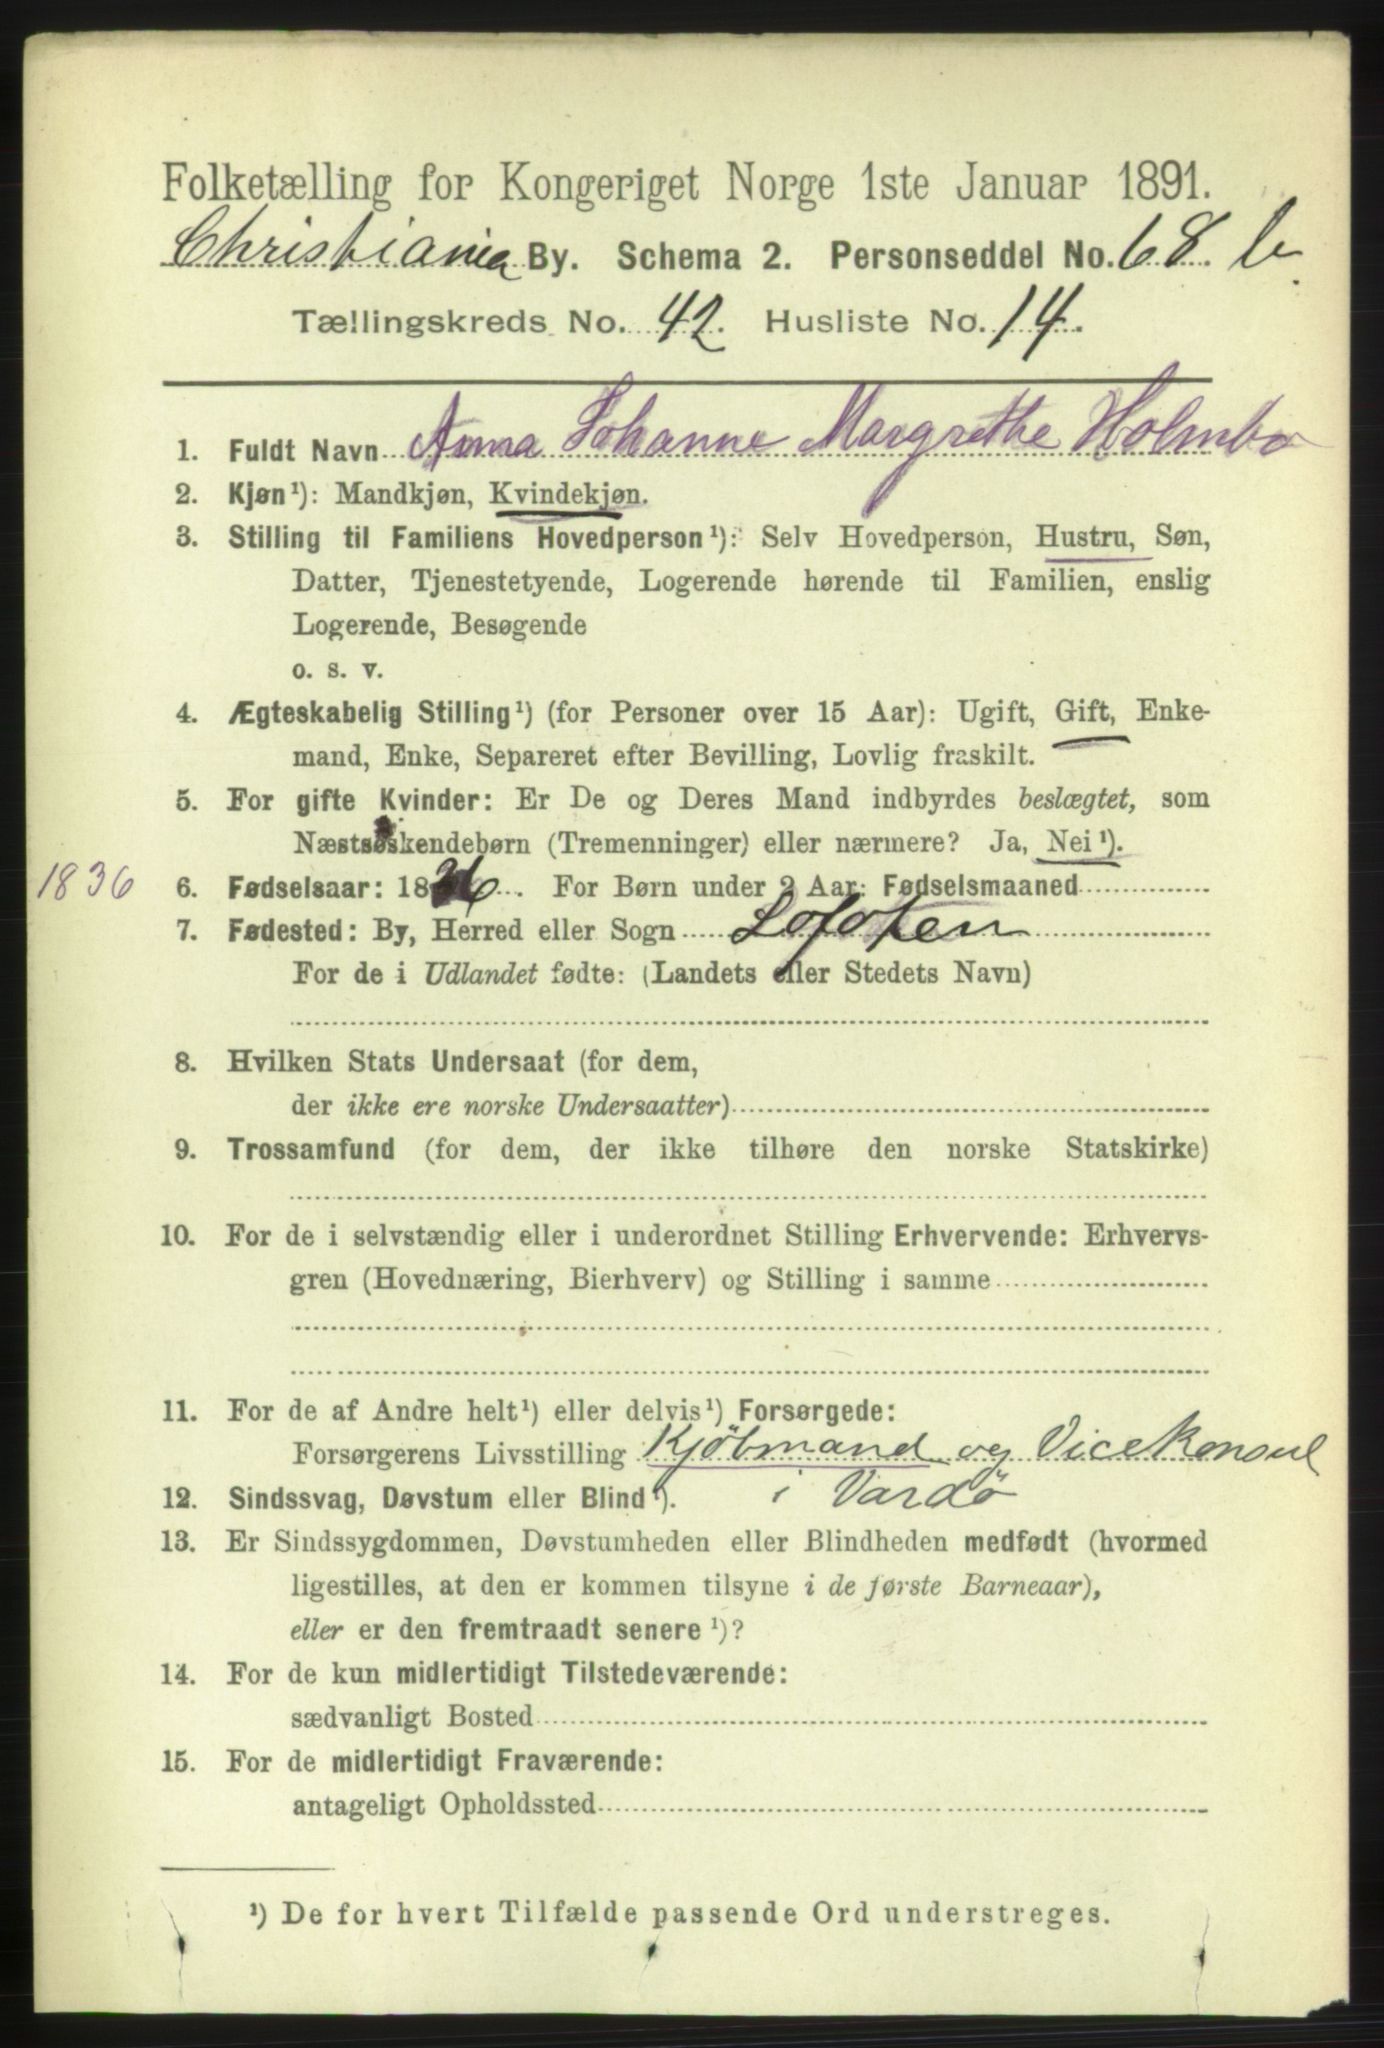 Folketælling for Kongeriget Norge 1ste Januar 1891.
Christiania By. Schema 2. Personseddel No. 68. b.
Tællingskreds No. 42. Husliste No. 14.
1. Fuldt Navn Anna Johanne Margrethe Holmbo
2. Kjøn¹): Mandkjøn, Kvindekjøn.
3. Stilling til Familiens Hovedperson¹): Selv Hovedperson, Hustru, Søn,
Datter, Tjenestetyende, Logerende hørende til Familien, enslig
Logerende, Besøgende
o. s. v.
4. Ægteskabelig Stilling¹) (for Personer over 15 Aar): Ugift, Gift, Enke-
mand, Enke, Separeret efter Bevilling, Lovlig fraskilt.
5. For gifte Kvinder: Er De og Deres Mand indbyrdes beslægtet, som
Næstsøskendebørn (Tremenninger) eller nærmere? Ja, Nei¹).
1836 6. Fødselsaar: 1836. For Børn under 2 Aar: Fødselsmaaned
7. Fødested: By, Herred eller Sogn Lofoten
For de i Udlandet fødte: (Landets eller Stedets Navn)
8. Hvilken Stats Undersaat (for dem,
der ikke ere norske Undersaatter)
9. Trossamfund (for dem, der ikke tilhøre den norske Statskirke)
10. For de i selvstændig eller i underordnet Stilling Erhvervende: Erhvervs-
gren (Hovednæring, Bierhverv) og Stilling i samme
11. For de af Andre helt¹) eller delvis¹) Forsørgede:
Forsørgerens Livsstilling Kjöbmand og Vicekonsul
12. Sindssvag, Døvstum eller Blind¹). i Vardö
13. Er Sindssygdommen, Døvstumheden eller Blindheden medfødt (hvormed
ligestilles, at den er kommen tilsyne i de første Barneaar),
eller er den fremtraadt senere¹)?
14. For de kun midlertidigt Tilstedeværende:
sædvanligt Bosted
15. For de midlertidigt Fraværende:
antageligt Opholdssted
¹) De for hvert Tilfælde passende Ord understreges.